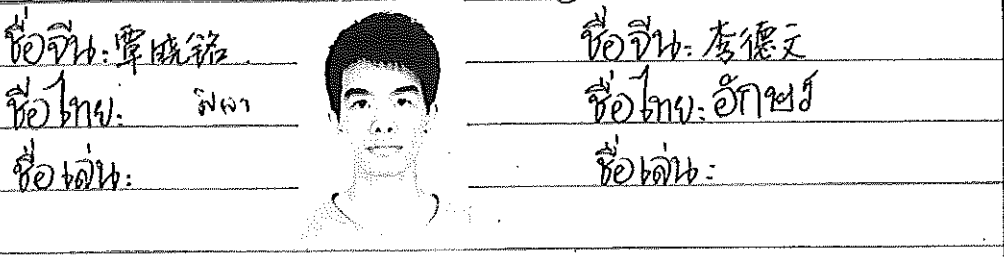 ชื่อจีน: 覃晓铭
ชื่อไทย:
ชื่อเล่น:
ชื่อจีน: 李德文
ชื่อไทย: อักษร
ชื่อเล่น: